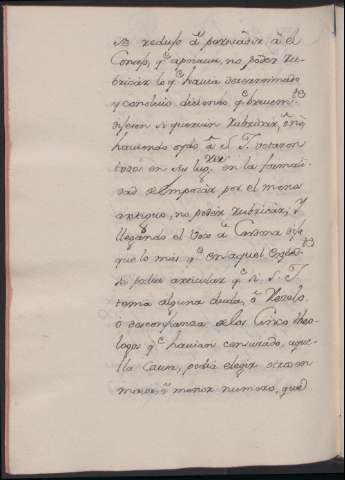 se reduso â persuadir â el
Consejo, q.e apenaua, no poder Ru-
bricar lo q.e hauia determinado
y concluio diciendo q.e brevem.te
dijesen si querian Rubricar, ô nò
hauiendo oydo â S. I. votaron
todos en su lug.r en la formali-
dad empezar por el menos
antiguo, no poder Rubricar; Y
llegando el Voto â Cordona dijo
que lo mas q.e en aquel
se podia articular q.e si S. I.
tenia alguna duda, ô Rezelo
ô desconfianza de los Cinco theo-
logos q.e hauian censurado, aque-
lla Causa, podia elegir otros en
maior, ô menor numero, que